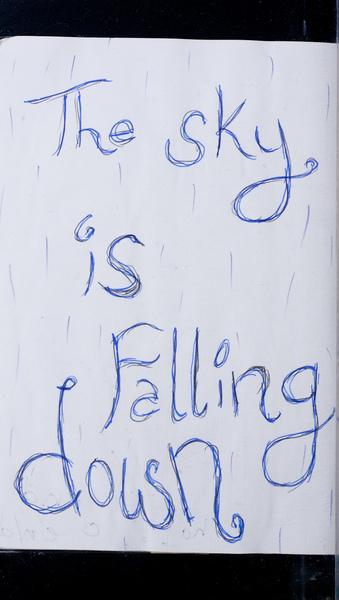 The sky
is
Falling
down